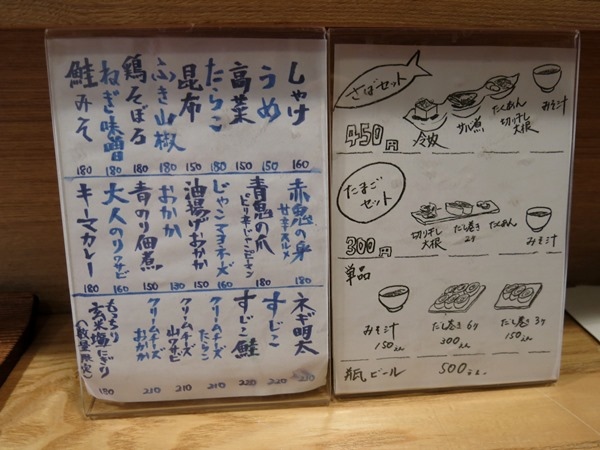 しゃけ 160
うめ 150
高菜 150
たらこ 180
昆布 150
ふき山椒 180
鶏そぼろ 180
ねぎ味噌 180
鮭みそ 180
赤鬼の身 甘辛スルメ 180
青鬼の爪 ピリ辛じゃこピーマン 180
じゃこマヨネーズ 160
油揚げおかか 150
おかか
青のり佃煮 150
大人のりワサビ 160
キーマカレー 180
ネギ明太
すじこ 220
すじこ鮭 220
クリームチーズ たらこ 210
クリームチーズ 山ワサビ 210
クリームチーズ おかか 210
もっちり玄米塩にぎり（数量限定） 180
さばセット
450円
冷奴
サバ煮
たくあん
切り干し大根
みそ汁
たまごセット
300円
切り干し大根
だし巻き 2ケ
たくあん
みそ汁
単品
みそ汁 150えん
だし巻き 6ケ 300えん
だし巻き 3ケ 150えん
瓶ビール 500えん